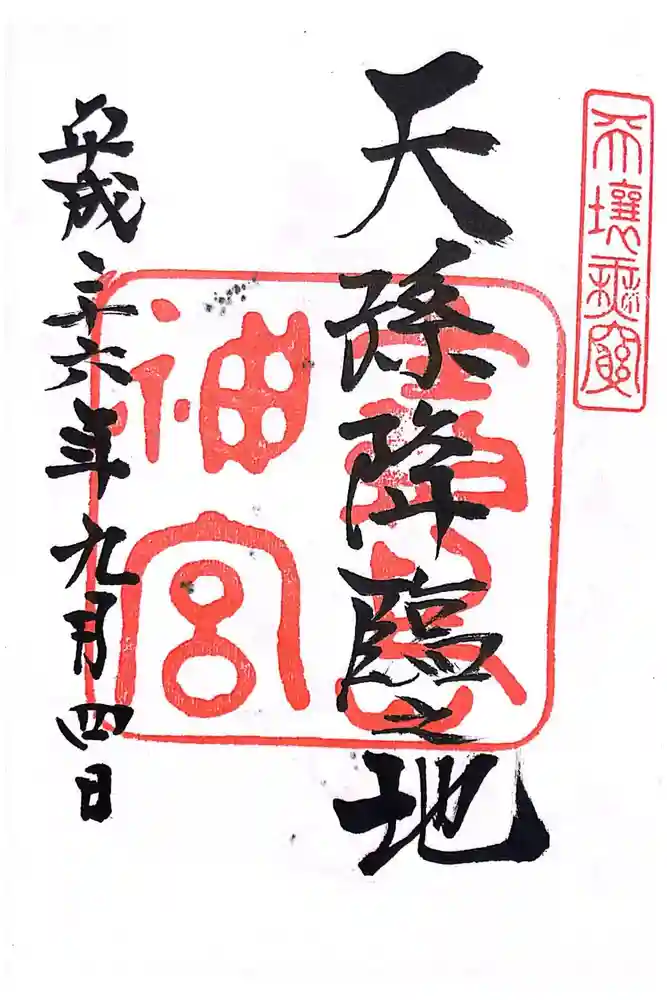 天壌無窮
天孫降臨之地
霧島神宮
平成二十六年九月四日